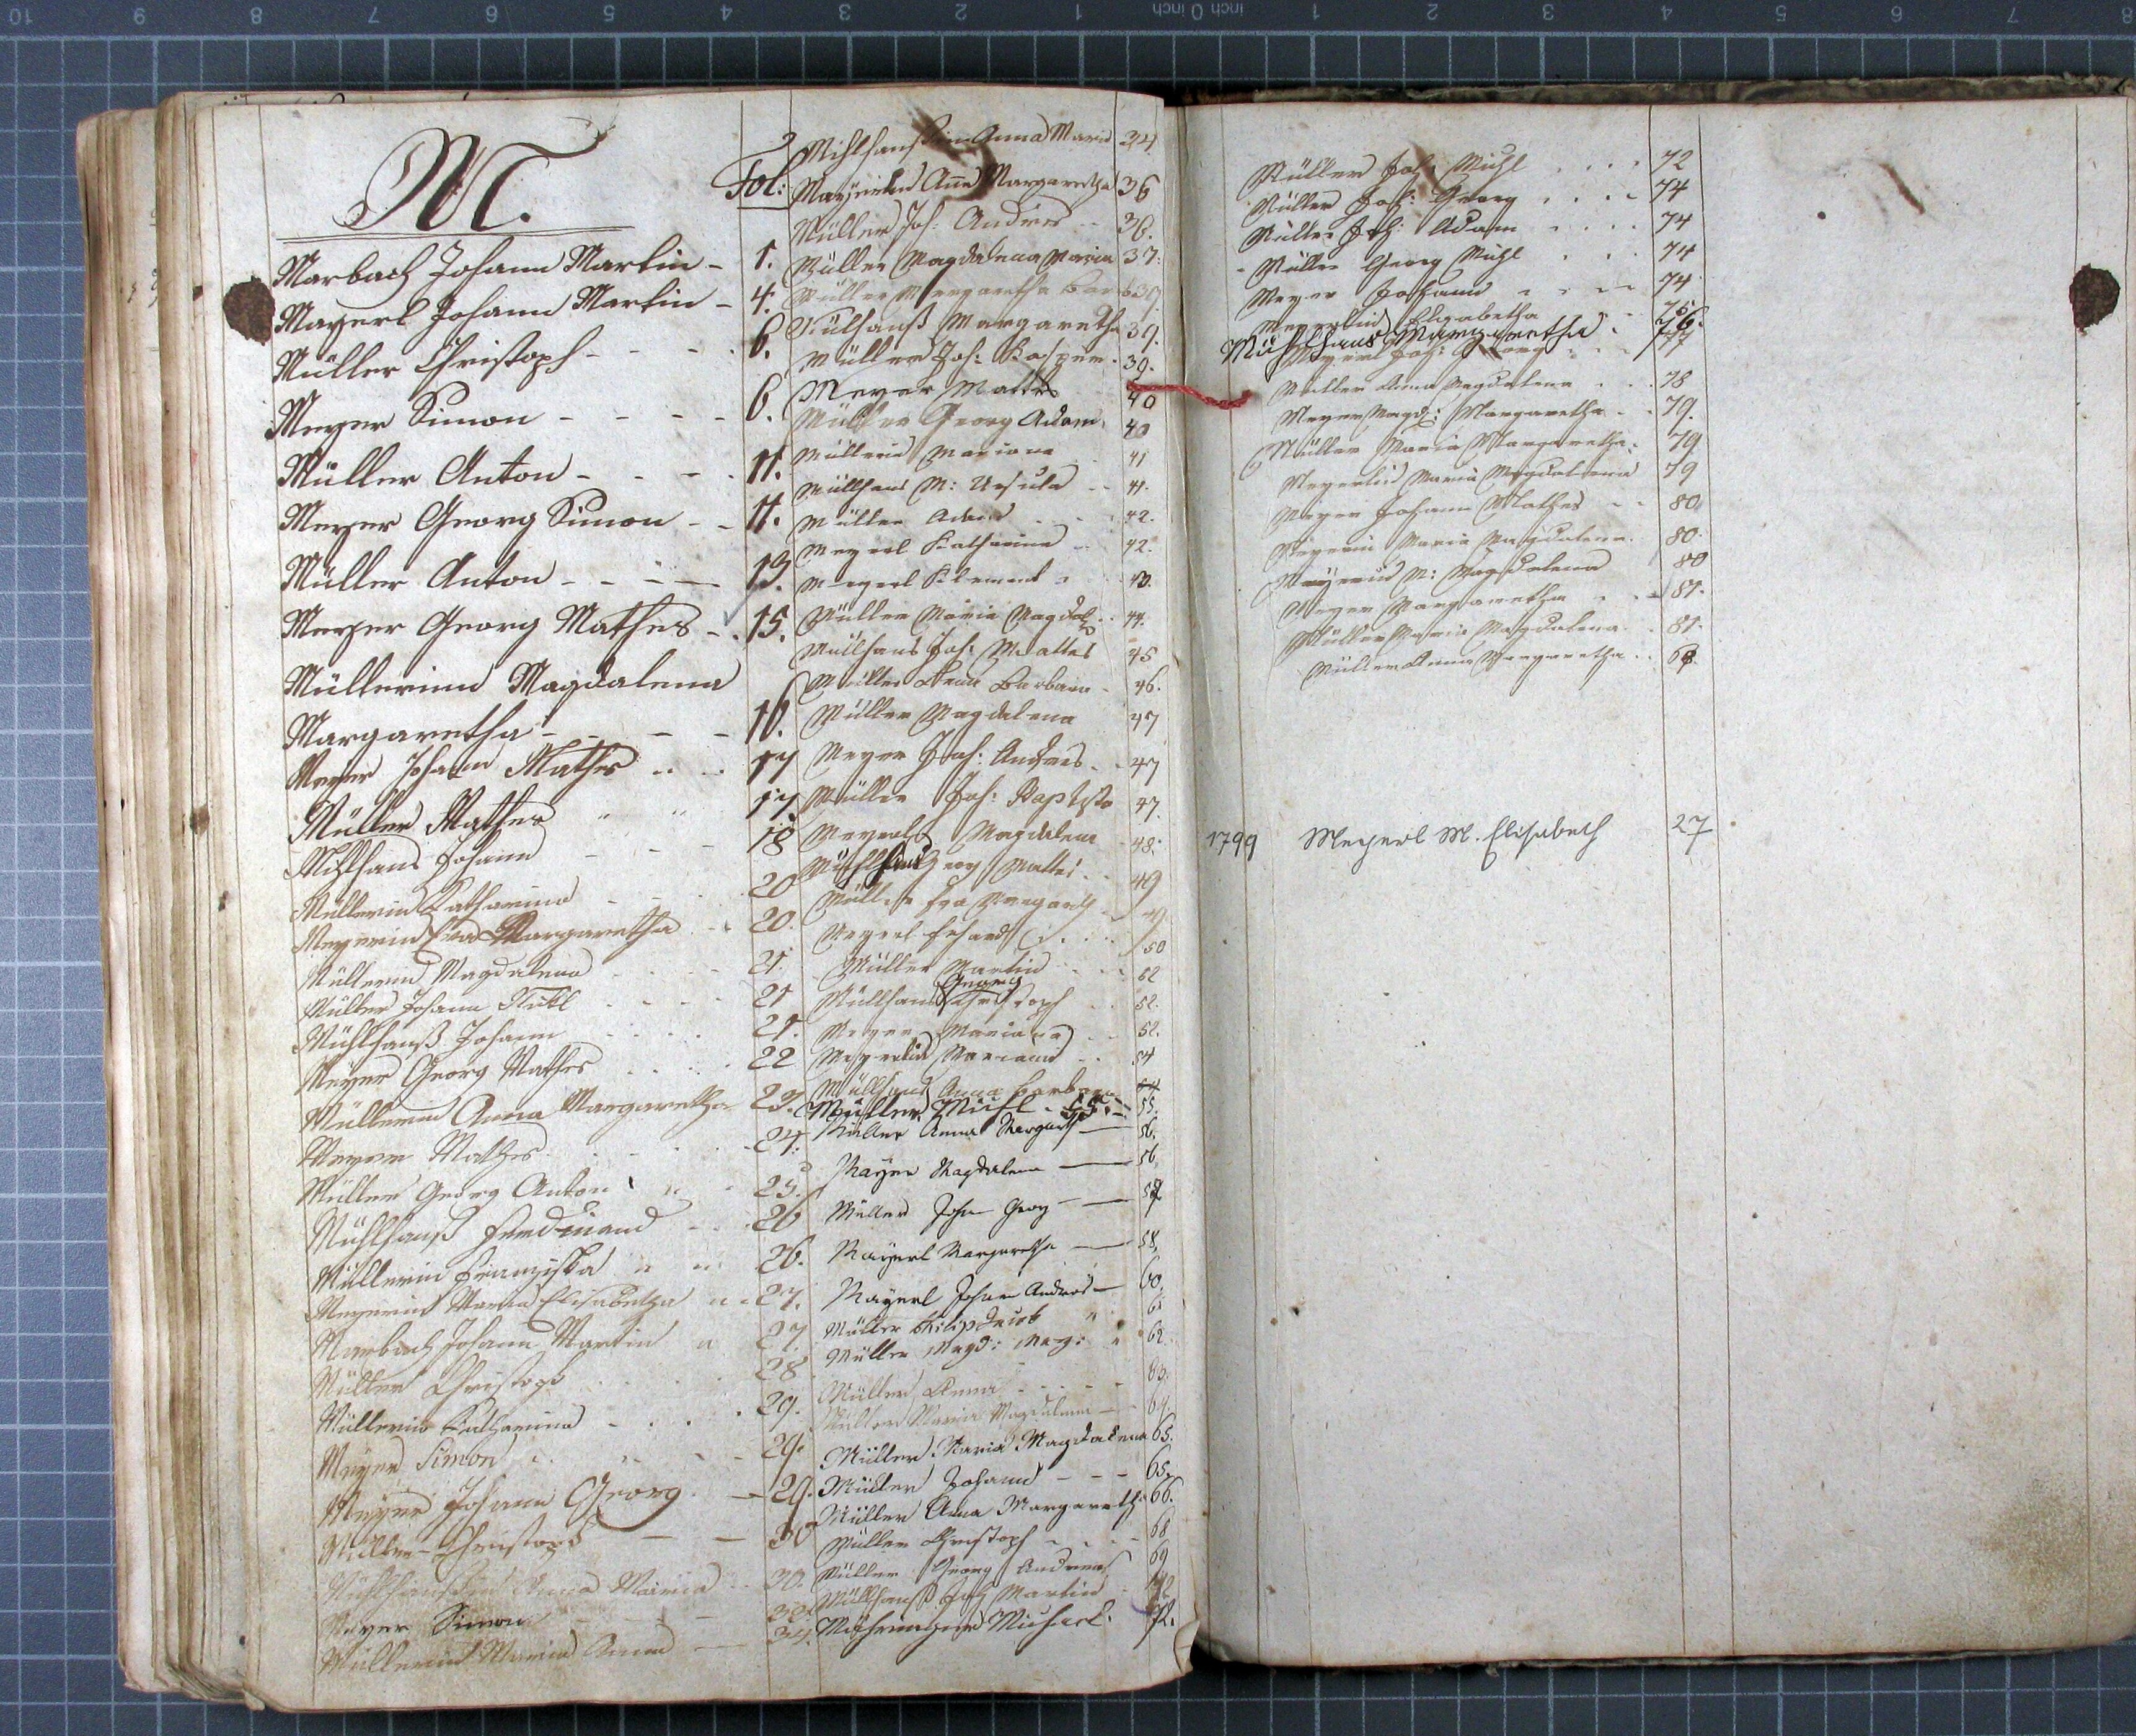 M.
Fol:
Marbach Johann Martin - 1.
Mayerl Johann Martin - 4.
Müller Christoph - - - - 6.
Meyer Simon - - - - 6.
Müller Anton - - - - 11.
Meyer Georg Simon - - 11.
Müller Anton - - - - 13.
Meyer Georg Mathes - . 15.
Müllerinn Magdalena
Margaretha - - - - 16.
Meyer Johann Mathes . . . 17
Müller Mathes " " 17
Mihlhans Johann - - - 18
Müllerin Katharina - - - 20
Meyerin Eva Margaretha . . 20.
Müllerin Magdalena - - - 21.
Müller Johann - - - 21
Mühlhauß Johann . . . . 21.
Meyer Georg Mathes . . . . 22
Müllerin Anna Margaretha 23.
Meyer Mathes . . . . . 24.
Müller Georg Anton 25.
Mühlhauß Ferdinand - - . 26
Müllerin Franziska " " 26.
Meyerin Maria Elisabetha 27.
Marbach Johann Martin 27.
Müller Christoph . . . . 28
Müllerin Katharina - . . . 29.
Meyer Simon 29.
Meyer Johann Georg - 29.
Müller Christoph - - 30
Mühlhaußin Anna Maria . . 30.
Meyer Simon
Müllerin Maria Anna - 34.
Mihlhanßin Anna Maria 34.
Mayerin Anna Margaretha 36
Müller Joh: Andres - - 36.
Müller Magdalena Maria 37.
Müller Margaretha Bar
Mülhanß Margaretha 39.
Müller Joh: Kasper . 39.
Meyer Mattes 40
Müller Georg Adam. 40
Müllerin Mariana 41
Müllhans M: Ursula - - 41.
Müller Adam . . . 42.
Meyerl Katharina - 42.
Meyerl Klement 43.
Müller Maria Magdal: . . 44.
Müllhans Joh: Mattes 45
Müller Anna Barbara - 46.
Müller Magdalena 47
Meyer Joh: Andres - - 47
Müller Joh: Baptista 47.
Meyerl Magdalena 48.
Mühlhans Georg Mattes . . 49
Müller Eva Margareth - 49.
Meyerl Erhard . . . . 50
Müller Martin . . . 52
Georg
Müllhans Christoph . . 52.
Meyer Mariana . . 52.
Meyerlin Mariana . . 54
Müllhans Anna Barbara 54
Müller Michl - 55. - 55.
Müller Anna Margareth - 56.
Mayer Magdalena - 56.
Müller Johan Georg - -
Mayerl Margaretha - 58.
Mayerl Johann Andres - 60.
Müller Philip Jacob " 61
Müller Magd: Marg: " 62.
Müller Anna - - - - 63.
Müller Maria Magdalena - - 64.
Müller Maria Magdalena 65.
Müller Johann - - - 65.
Müller Anna Margareth: 66.
Müller Christoph - . . - 68
Müller Georg Andreas 69
Müllhanß Joh Martin
Michael. 72.
Müller Joh: Michl . . . 72
Müller Joh: Georg . . . . 74
Müller Joh: Adam . . . . 74
Müller Georg Michl . . . 74
Meyer Johann . . . . 74
Meyerlin Elisabetha . - 75
Mühlhans Margaretha . 76.
Meyerl Joh: Georg . . . 77
Müller Anna Magdalena . . . 78
Meyer Magd: Margaretha - . 79.
Müller Maria Margaretha . 79.
Meyerlin Maria Magdalena 79
Meyer Johann Mathes - - 80.
Meyerin Maria Magdalena. 80.
Mayerin M: Magdalena 80
Meyer Margaretha . . - 81.
Müller Maria Magdalena . . 81.
Müller Anna Margaretha . .
1799 Meyerl M. Elisabeth 27
10 9 8 7 6 5 4 3 2 1 0 inch 1 2 3 4 5 6 7 8